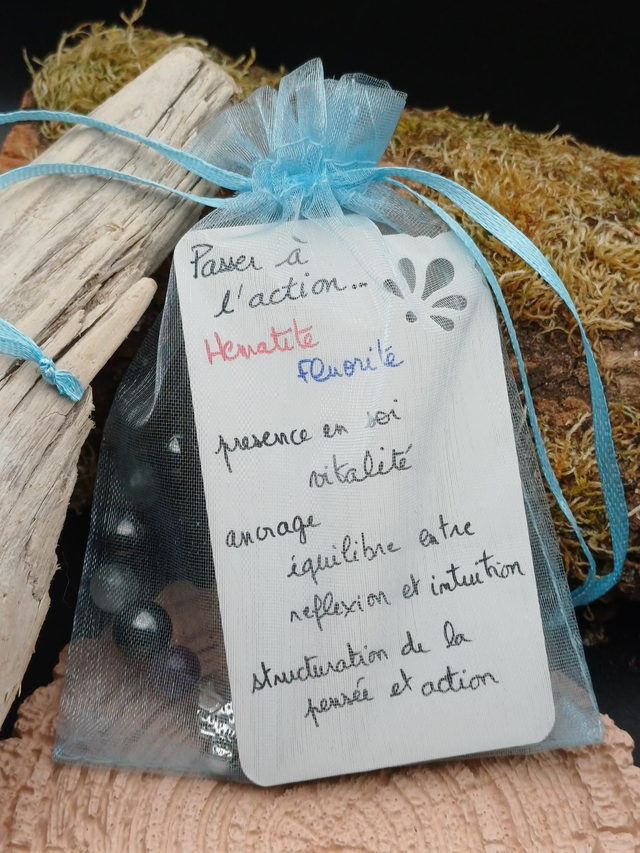 Passer à
l'action...
Hematite
Fluorite
presence en soi
vitalité
ancrage
équilibre entre
reflexion et intuition
structuration de la
pensée et action